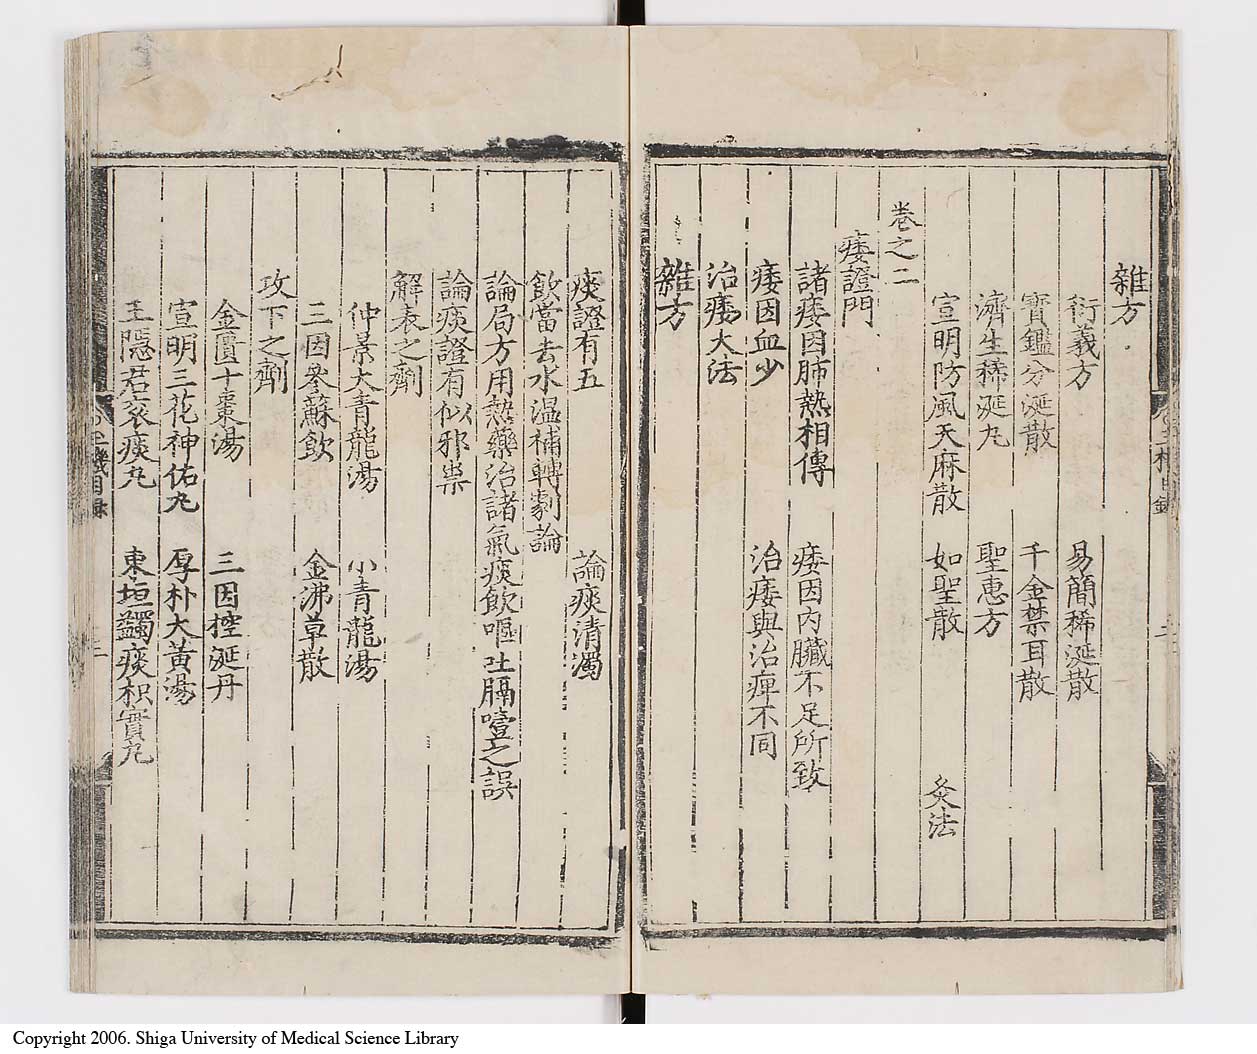 雜方
衍義方　易簡稀涎散
寳鑑分涎散　千金禁耳散
濟生稀涎丸　聖惠方
宣明防風天麻散　如聖散　灸法
卷之二
痿證門
諸痿因肺熱相傳　痿因內臟不足所致
痿因血少　治痿與治痺不同
治痿大法
雜方
痰證有五　論痰清濁
飲當去水温補轉劇論
論局方用熱藥治諸氣痰飲嘔吐膈噎之誤
論痰證有似邪祟
解表之劑
仲景大青龍湯　小青龍湯
三因參蘇飲　金沸草散
攻下之劑
金匱十棗湯　三因控涎丹
宣明三花神佑丸　厚朴大黃湯
王隱君衮痰丸　東垣蠲痰枳實丸
機目錄
三
Copyright 2006. Shiga University of Medical Science Library